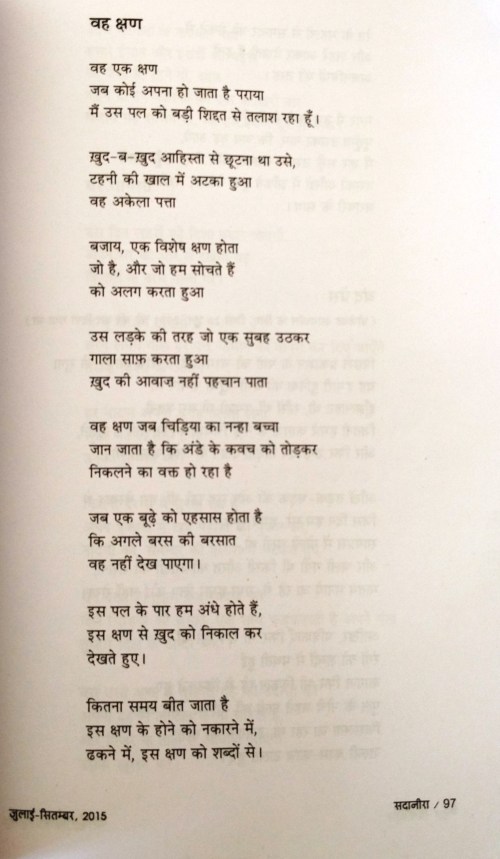 वह क्षण
वह एक क्षण
जब कोई अपना हो जाता है पराया
मैं उस पल को बड़ी शिद्दत से तलाश रहा हूँ।
ख़ुद-ब-ख़ुद आहिस्ता से छूटना था उसे,
टहनी की खाल में अटका हुआ
वह अकेला पत्ता
बजाय, एक विशेष क्षण होता
जो है, और जो हम सोचते हैं
को अलग करता हुआ
उस लड़के की तरह जो एक सुबह उठकर
गाला साफ़ करता हुआ
ख़ुद की आवाज़ नहीं पहचान पाता
वह क्षण जब चिड़िया का नन्हा बच्चा
जान जाता है कि अंडे के कवच को तोड़कर
निकलने का वक्त हो रहा है
जब एक बूढ़े को एहसास होता है
कि अगले बरस की बरसात
वह नहीं देख पाएगा।
इस पल के पार हम अंधे होते हैं,
इस क्षण से ख़ुद को निकाल कर
देखते हुए।
कितना समय बीत जाता है
इस क्षण के होने को नकारने में,
ढकने में, इस क्षण को शब्दों से।
जुलाई-सितम्बर, 2015
सदानीरा / 97